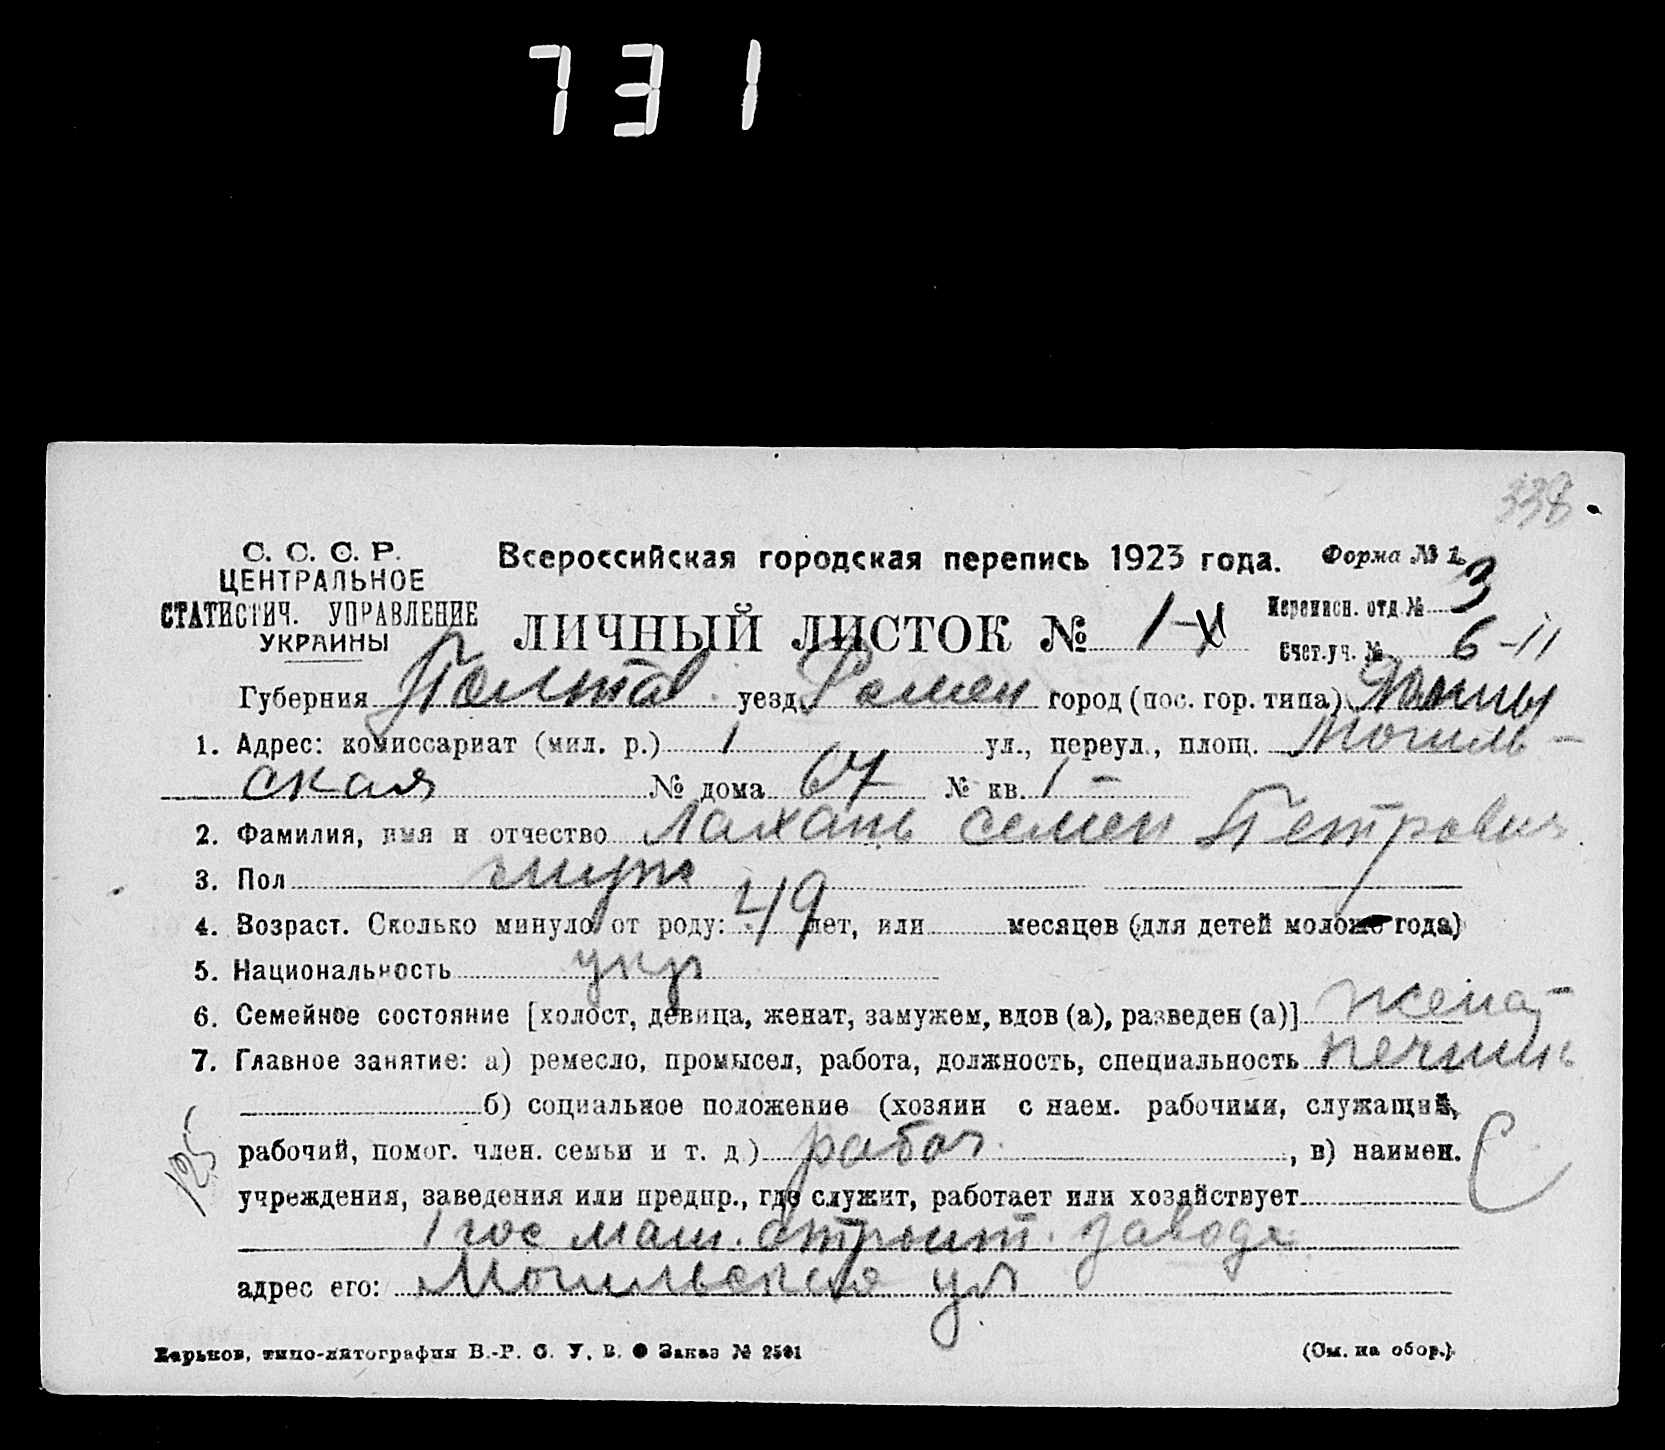 731
338
С. С. С. Р.
ЦЕНТРАЛЬНОЕ
СТАТИСТИЧ. УПРАВЛЕНИЕ
УКРАИНЫ
Всероссийская городская перепись 1923 года. Форма № 1.
ЛИЧНЫЙ ЛИСТОК № 1
Переписн. отд № 3
Счет.уч. № 6-11
Губерния Полтав. уезд Ромен город (пос. гор. типа) Ромны
1. Адрес: комиссариат (мил. р.) 1 ул., переул., площ. Могиль-
ская № дома 67 № кв. 1 -
2. Фамилия, имя и отчество Лахань Семен Петрович
3. Пол муж
4. Возраст. Сколько минуло от роду: 49 лет, или месяцев (для детей моложе года)
5. Национальность укр
6. Семейное состояние [холост, девица, женат, замужем, вдов (а), разведен (а)] женат
7. Главное занятие: а) ремесло, промысел, работа, должность, специальность печник
б) социальное положение (хозяин с наем. рабочими, служащий,
рабочий, помог. член. семьи и т. д) рабоч. , в) наимен.
учреждения, заведения или предпр., где служит, работает или хозяйствует
1 гос маш. строит. заводе
адрес его: Могильская ул
125
С
Харьков, типо-литография В.-Р. С. У. В. Заказ № 2591
(См. на обор.)